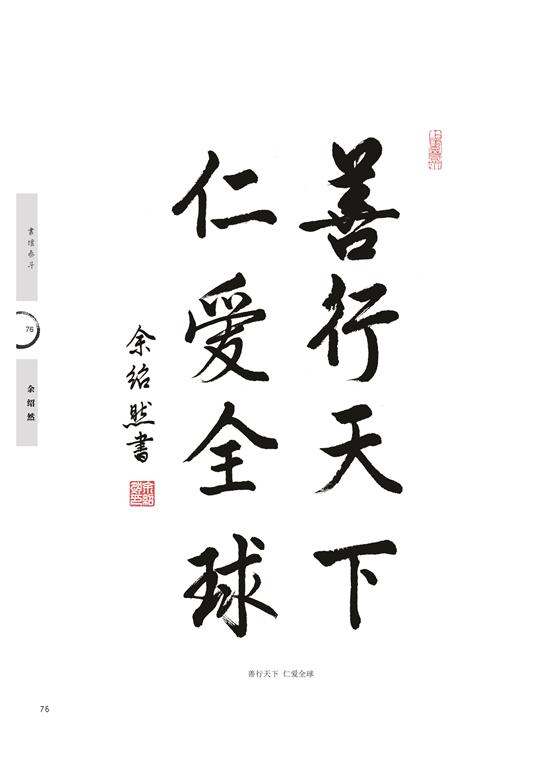 善行天下
仁愛全球
余紹然書
書壇泰斗
76
余绍然
善行天下 仁爱全球
76